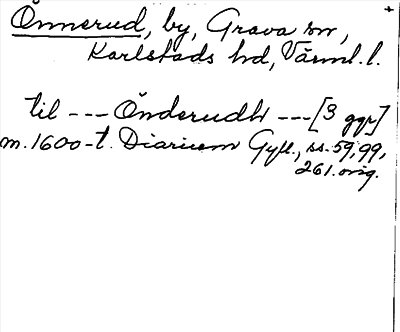 Önnerud, by, Grava sn,
Karlstads hd, Värml. l.
til --- Önderudh --- [3 ggr]
m. 1600-t. Diarium Gyll., ss. 59, 99,
261. orig.